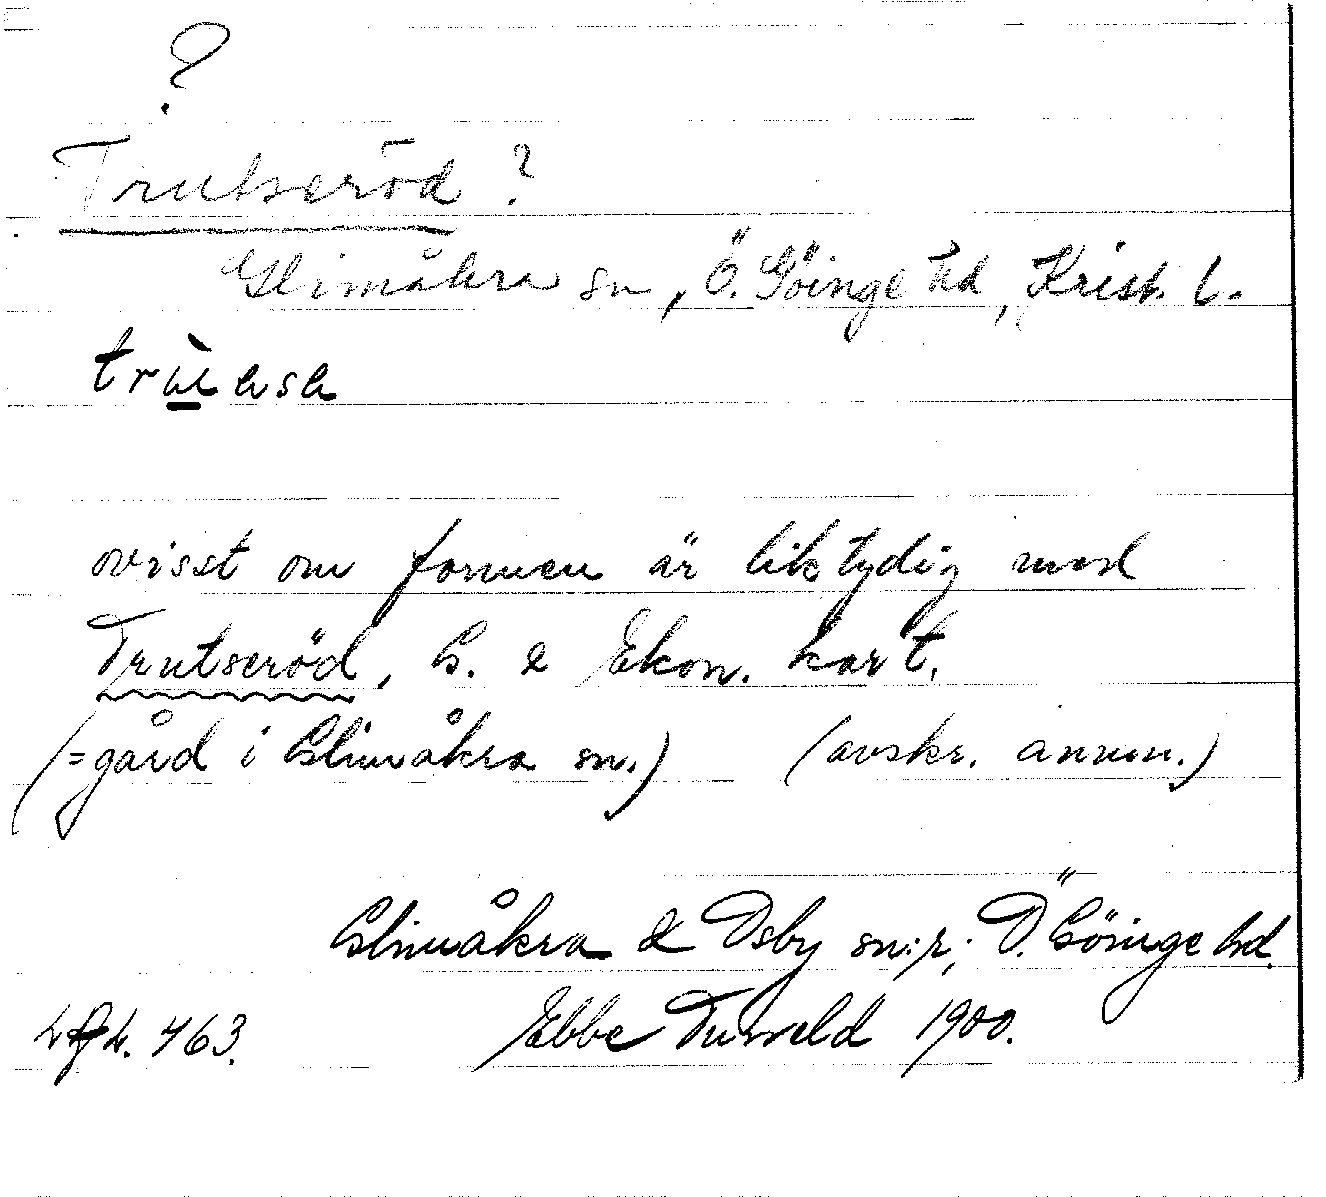 ?
Trutseröd ?
Glimåkra sn, Ö. Göinge hd, Krist. l.
ovisst om formen är liktydig med
Trutseröd, G. & Ekon. kart.
(=gård i Glimåkra sn.) (avskr. anm.)
Glimåkra & Osby sn:r; Ö. Göinge hd.
763. Ebbe Tuneld 1900.